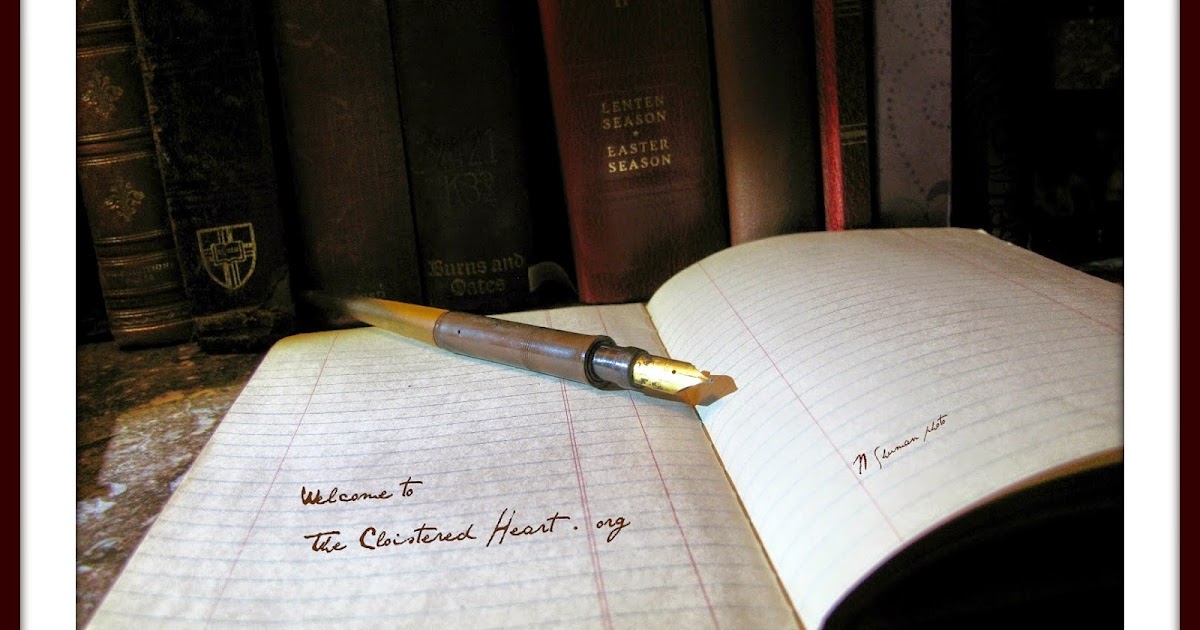 II
LENTEN
SEASON
EASTER
SEASON
Burns and
Oates
Welcome to
The Cloistered Heart. org
N Shuman photo